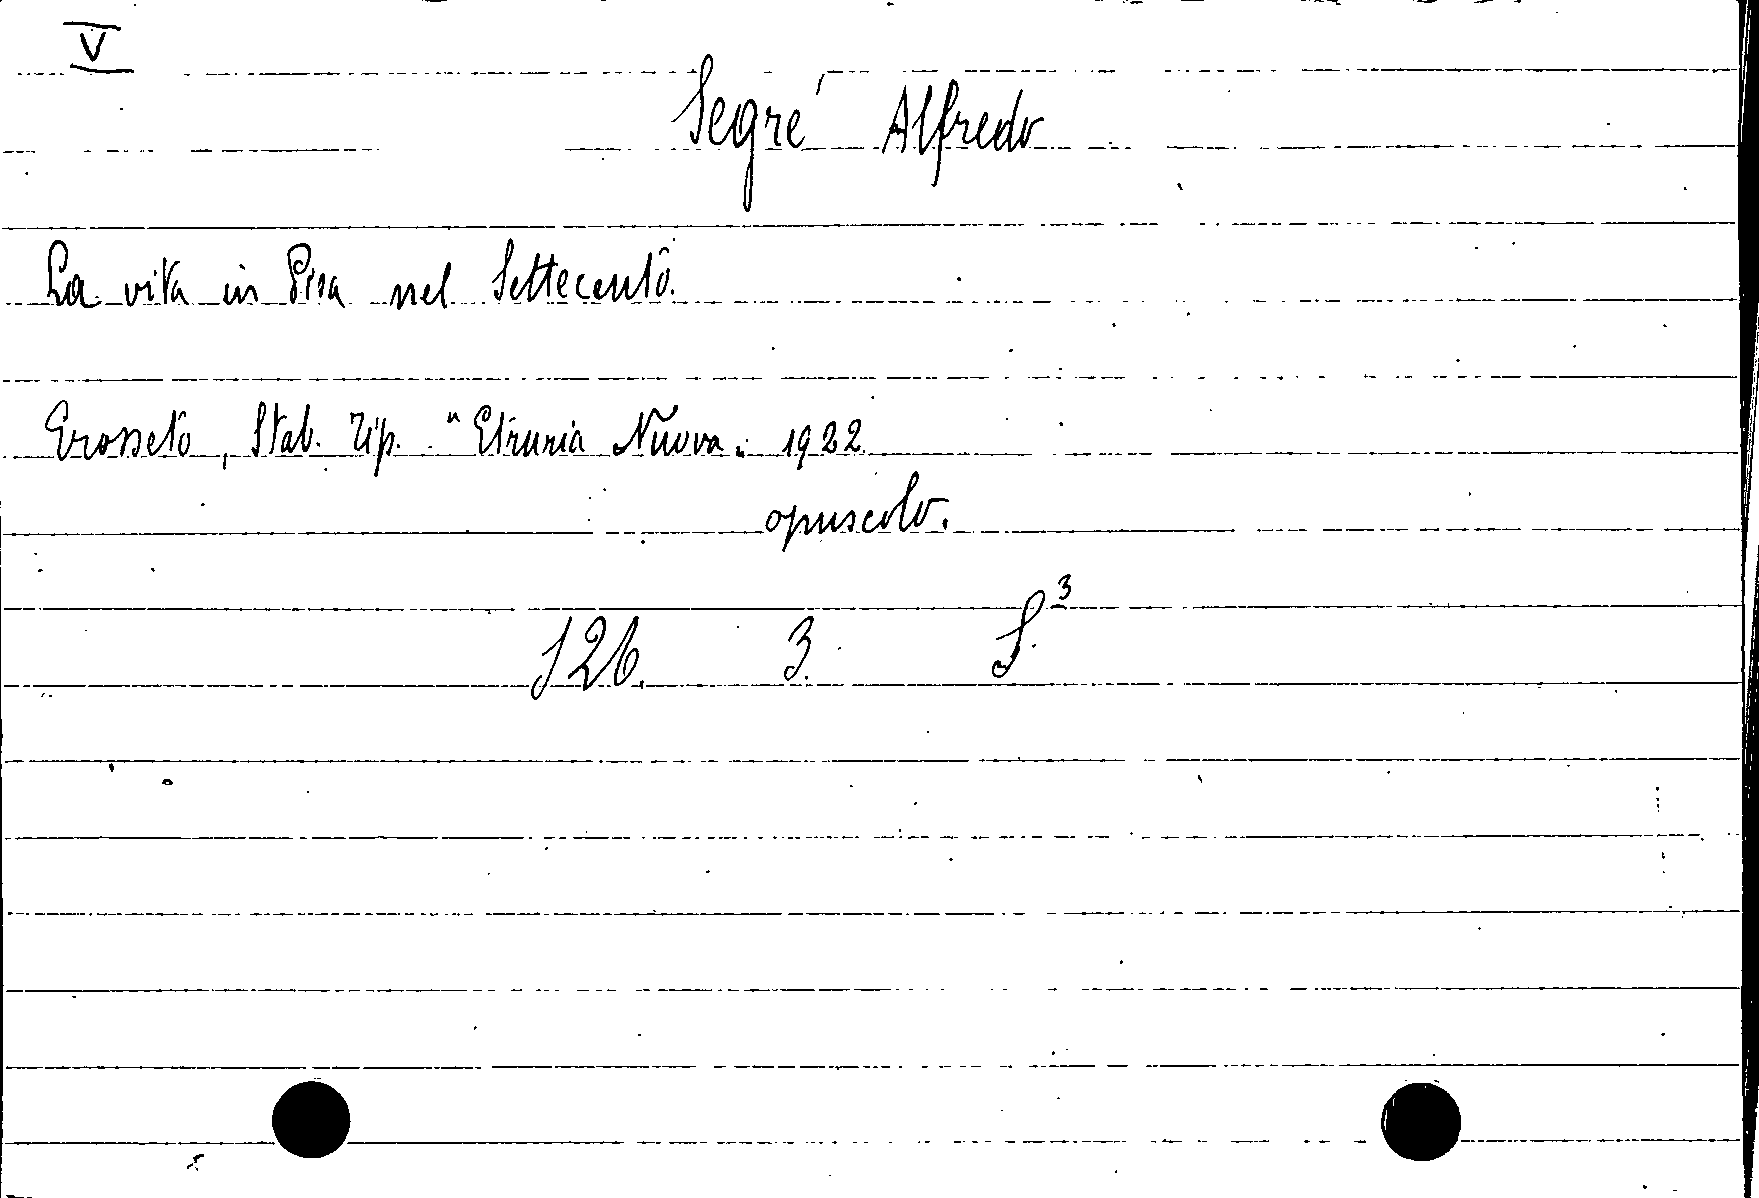 V
Segré Alfredo
La vita in Pisa nel Settecento.
Grosseto, Stab. Tip. "Etruria Nuova" 1922
opuscolo.
126. 3. S.³